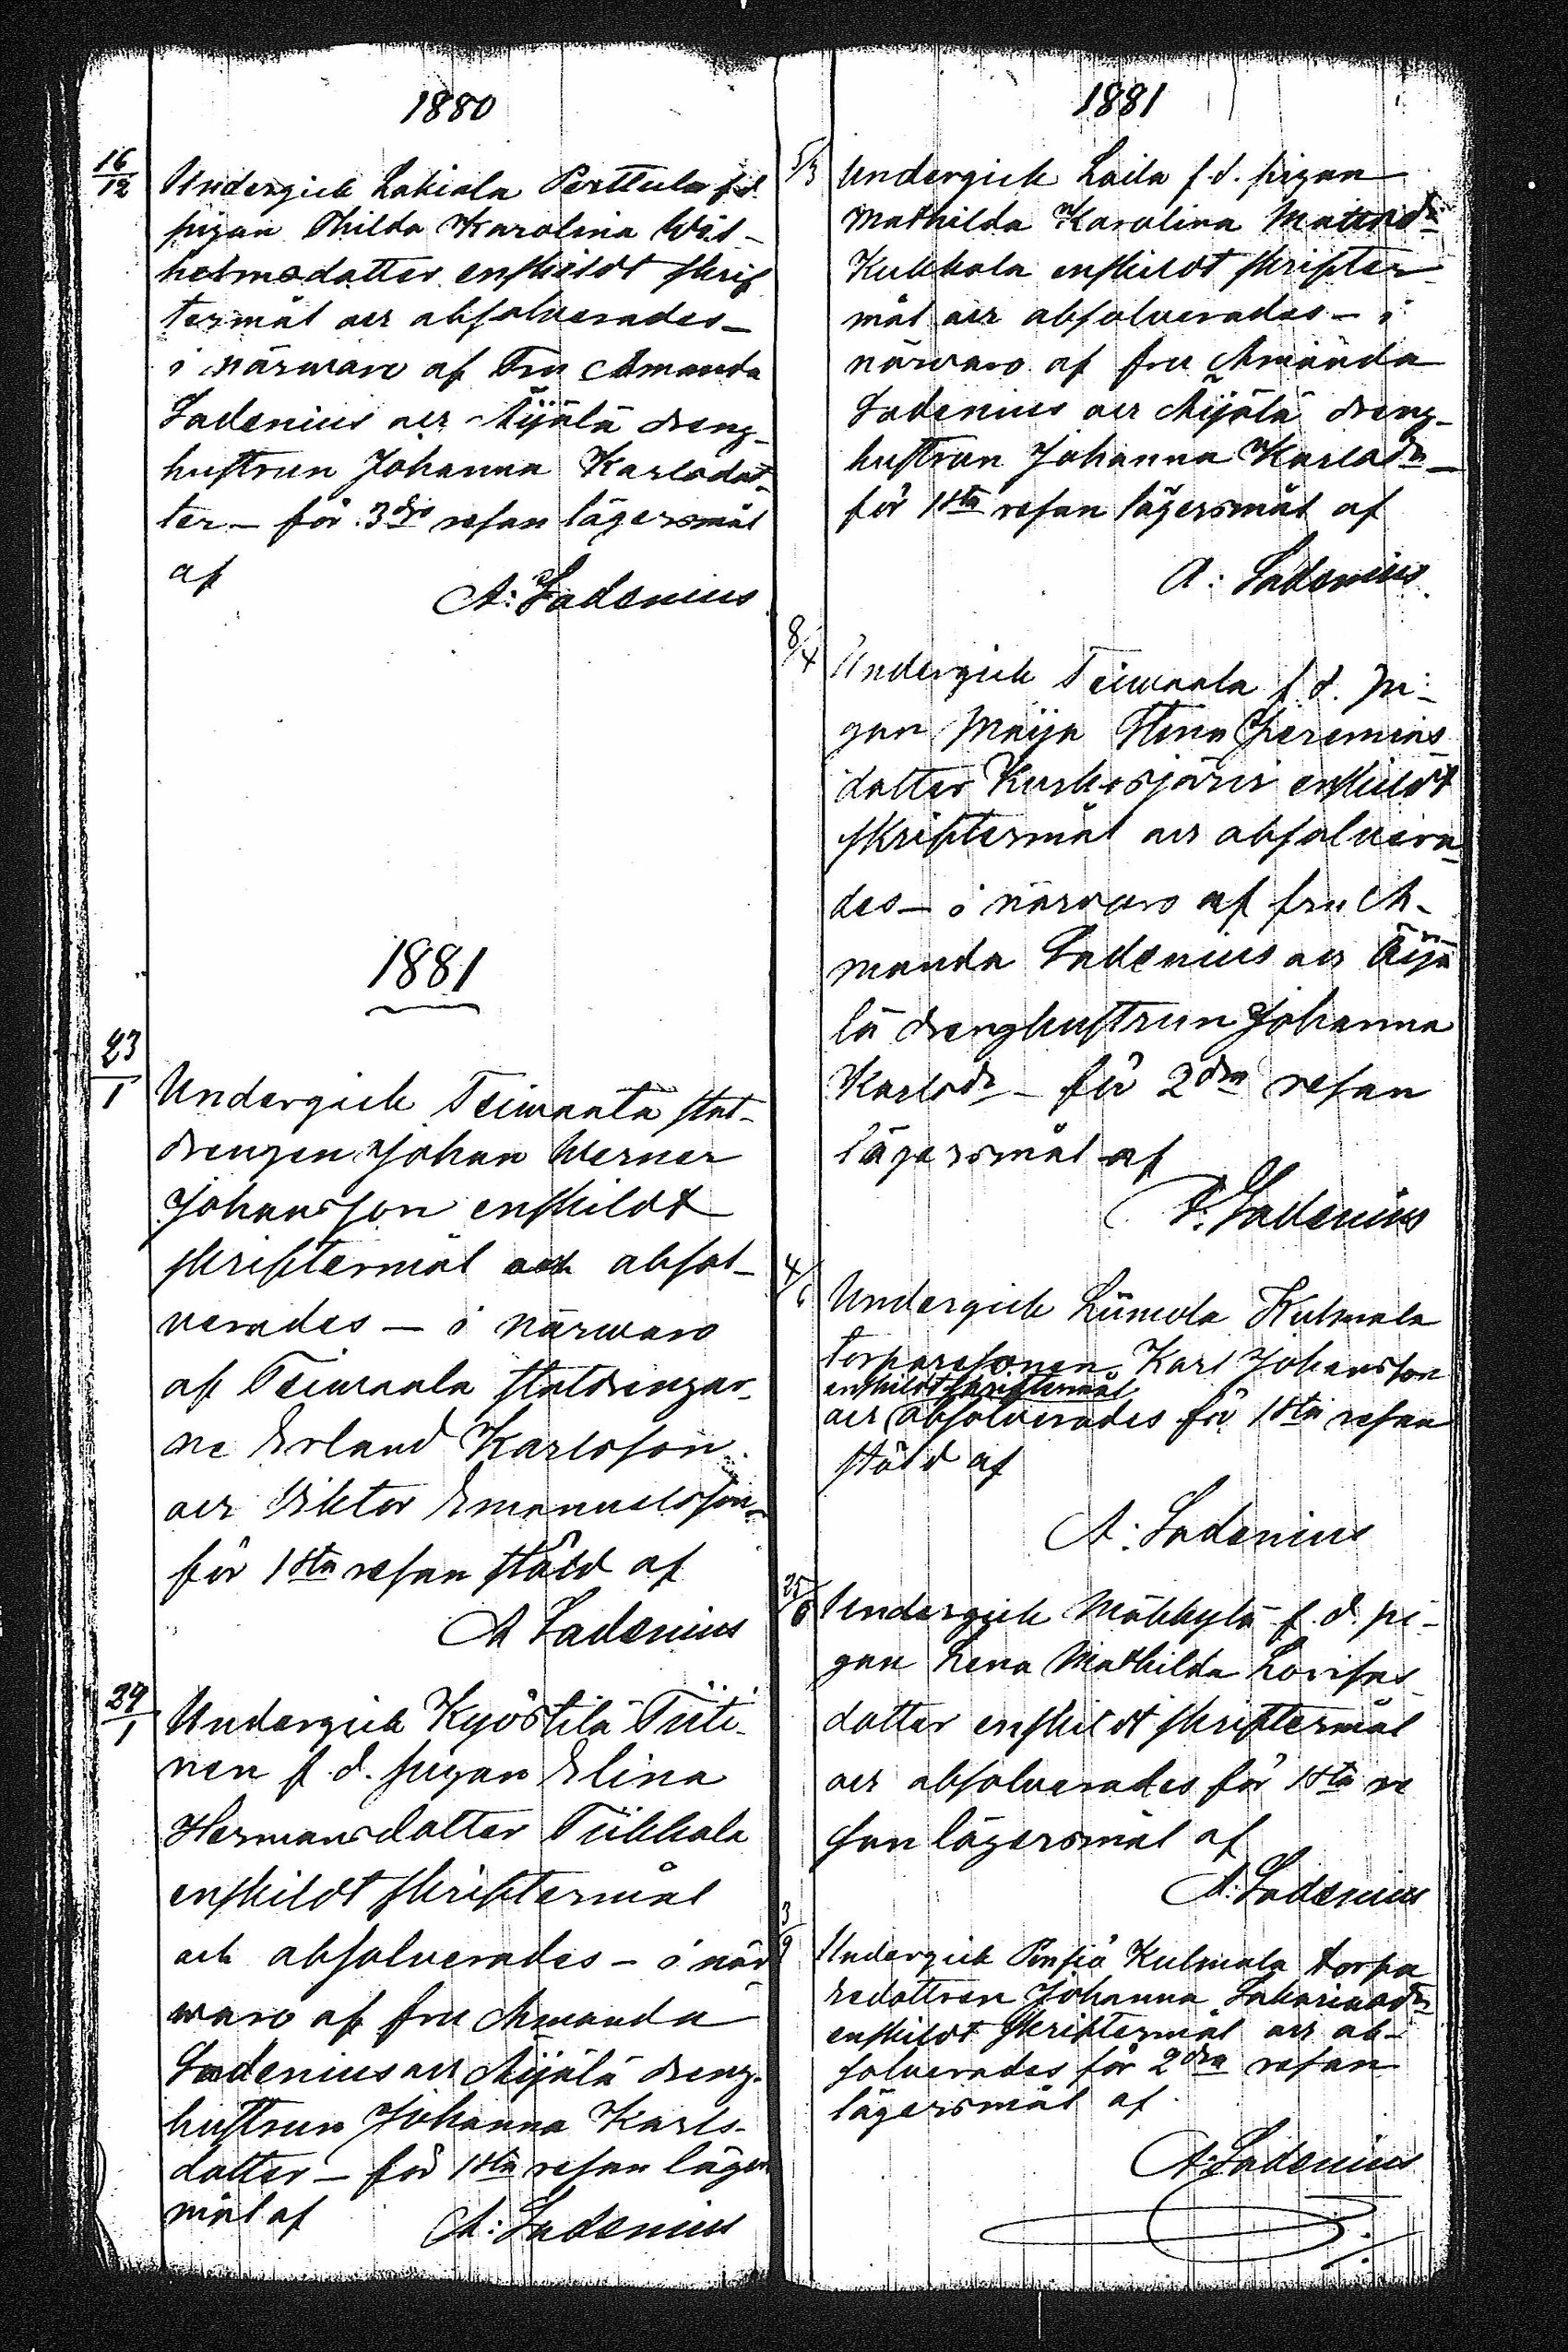 1880
16/12
Undergick Lakiala Perttula f.d.
pigan Thilda Karolina Wil-
helmsdatter enskildt skrif
termål och absolverades –
i närwaro af Fru Amanda
Ladenius och Äijälä dreng-
hustrun Johanna Karlsdat-
ter – för 3dje resan lägersmål
af
A: Ladenius
1881
23/1
Undergick Teiwaala stat-
drengen Johan Werner
Johansson enskildt
skriftermål och absol-
verades – i närwaro
af Teiwaala statdrengar-
ne Erland Karlsson
och Viktor Emanuelsson –
för 1sta resan stöld af
A Ladenius
29/1
Undergick Kyöstilä Tiiti-
nen f.d. pigan Elina
Hermansdatter Tiikkala
enskildt skriftermål
och absolverades – i när
waro af fru Amanda
Ladenius och Äijälä dreng-
hustrun Johanna Karls-
datter – för 1sta resan läger
mål af
A: Ladenius
1881
5/3
Undergick Laila f.d. pigan
Mathilda Karolina Mattsdr
Kukkola enskildt skrifter-
mål och absolverades – i
närvaro af fru Amanda
Ladenius och Äijälä dreng-
hustrun Johanna Karlsdr –
för 1sta resan lägersmål af
A: Ladenius
8/4
Undergick Teiwaala f.d. pi-
gan Maija Stina Jeremias
datter Kuskosjärvi enskildt
skriftermål och absolvera-
des – i närvaro af fru A-
manda Ladenius och Äijä
lä drenghustrun Johanna
Karlsdr – för 2dra resan
lägersmål af
A. Ladenius
4/6
Undergick Liuwola Kulmala
torparesonen Karl Johansson
enskildt skriftermål
och absolverades för 1sta resan
stöld af
A: Ladenius
25/6
Undergick Mäkkylä f.d. pi-
gan Lena Mathilda Lovisas
datter enskildt skriftermål
och absolverades för 1sta re
san lägersmål af
A: Ladenius
3/9
Undergick Pinsiö Kulmala torpa
redottren Johanna Sakariasdr
enskildt skriftermål och ab-
solverades för 2dra resan
lägersmål af
A: Ladenius